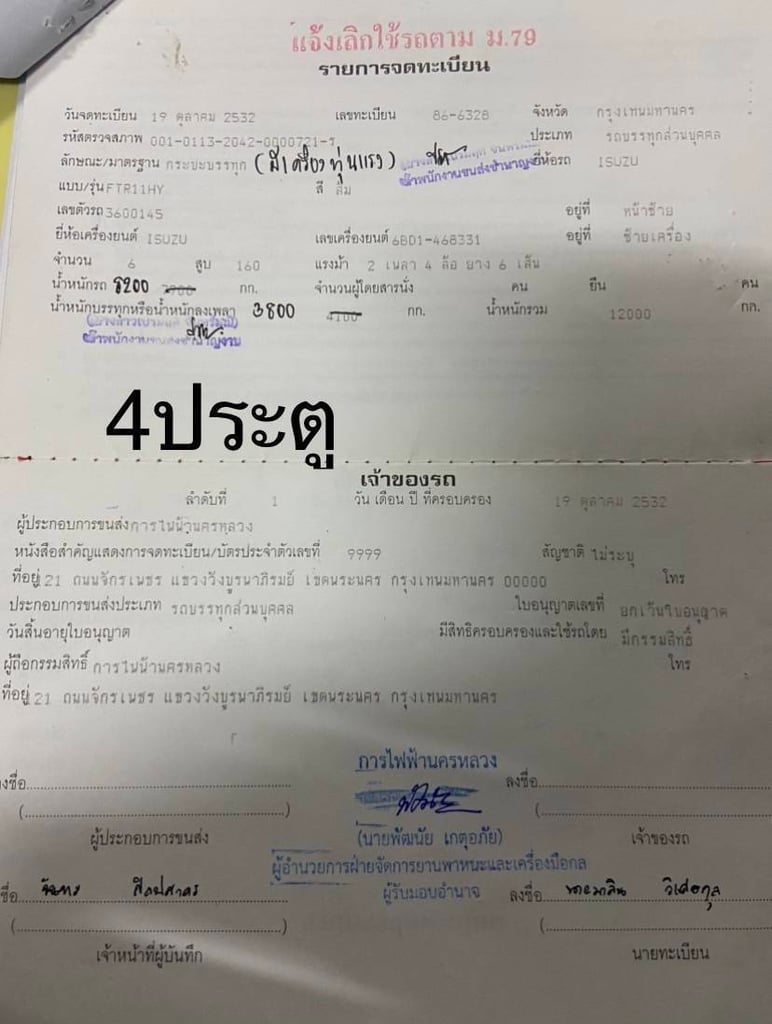 แจ้งเลิกใช้รถตาม ม.79
รายการจดทะเบียน
วันจดทะเบียน 19 ตุลาคม 2532 เลขทะเบียน 86-6328 จังหวัด กรุงเทพมหานคร
รหัสตรวจสภาพ 001-0113-2042-0000721-ร ประเภท รถบรรทุกส่วนบุคคล
ลักษณะ/มาตรฐาน กระบะบรรทุก (มีเครื่องทุ่นแรง) เจ้าพนักงานขนส่งชำนาญงาน ยี่ห้อรถ ISUZU
แบบ/รุ่น FTR11HY สี ส้ม
เลขตัวรถ 3600145 อยู่ที่ หน้าซ้าย
ยี่ห้อเครื่องยนต์ ISUZU เลขเครื่องยนต์ 6BD1-468331 อยู่ที่ ซ้ายเครื่อง
จำนวน 6 สูบ 160 แรงม้า 2 เพลา 4 ล้อ ยาง 6 เส้น
น้ำหนักรถ 8200 กก. จำนวนผู้โดยสารนั่ง คน ยืน คน
น้ำหนักบรรทุกหรือน้ำหนักลงเพลา 3800 4100 กก. น้ำหนักรวม 12000 กก.
เจ้าพนักงานขนส่งชำนาญงาน
4ประตู
เจ้าของรถ
ลำดับที่ 1 วัน เดือน ปี ที่ครอบครอง 19 ตุลาคม 2532
ผู้ประกอบการขนส่ง การไฟฟ้านครหลวง
หนังสือสำคัญแสดงการจดทะเบียน/บัตรประจำตัวเลขที่ 9999 สัญชาติ ไม่ระบุ
ที่อยู่ 21 ถนนจักรเพชร แขวงวังบูรพาภิรมย์ เขตพระนคร กรุงเทพมหานคร 00000 โทร
ประกอบการขนส่งประเภท รถบรรทุกส่วนบุคคล ใบอนุญาตเลขที่ ยกเว้นใบอนุญาต
วันสิ้นอายุใบอนุญาต มีสิทธิครอบครองและใช้รถโดย มีกรรมสิทธิ์
ผู้ถือกรรมสิทธิ์ การไฟฟ้านครหลวง โทร
ที่อยู่ 21 ถนนจักรเพชร แขวงวังบูรพาภิรมย์ เขตพระนคร กรุงเทพมหานคร
การไฟฟ้านครหลวง
ลงชื่อ ลงชื่อ
(นายพัฒนัย เกตุอภัย)
ผู้ประกอบการขนส่ง เจ้าของรถ
ผู้อำนวยการฝ่ายจัดการยานพาหนะและเครื่องมือกล
ชื่อ ผู้รับมอบอำนาจ ลงชื่อ
เจ้าหน้าที่ผู้บันทึก นายทะเบียน